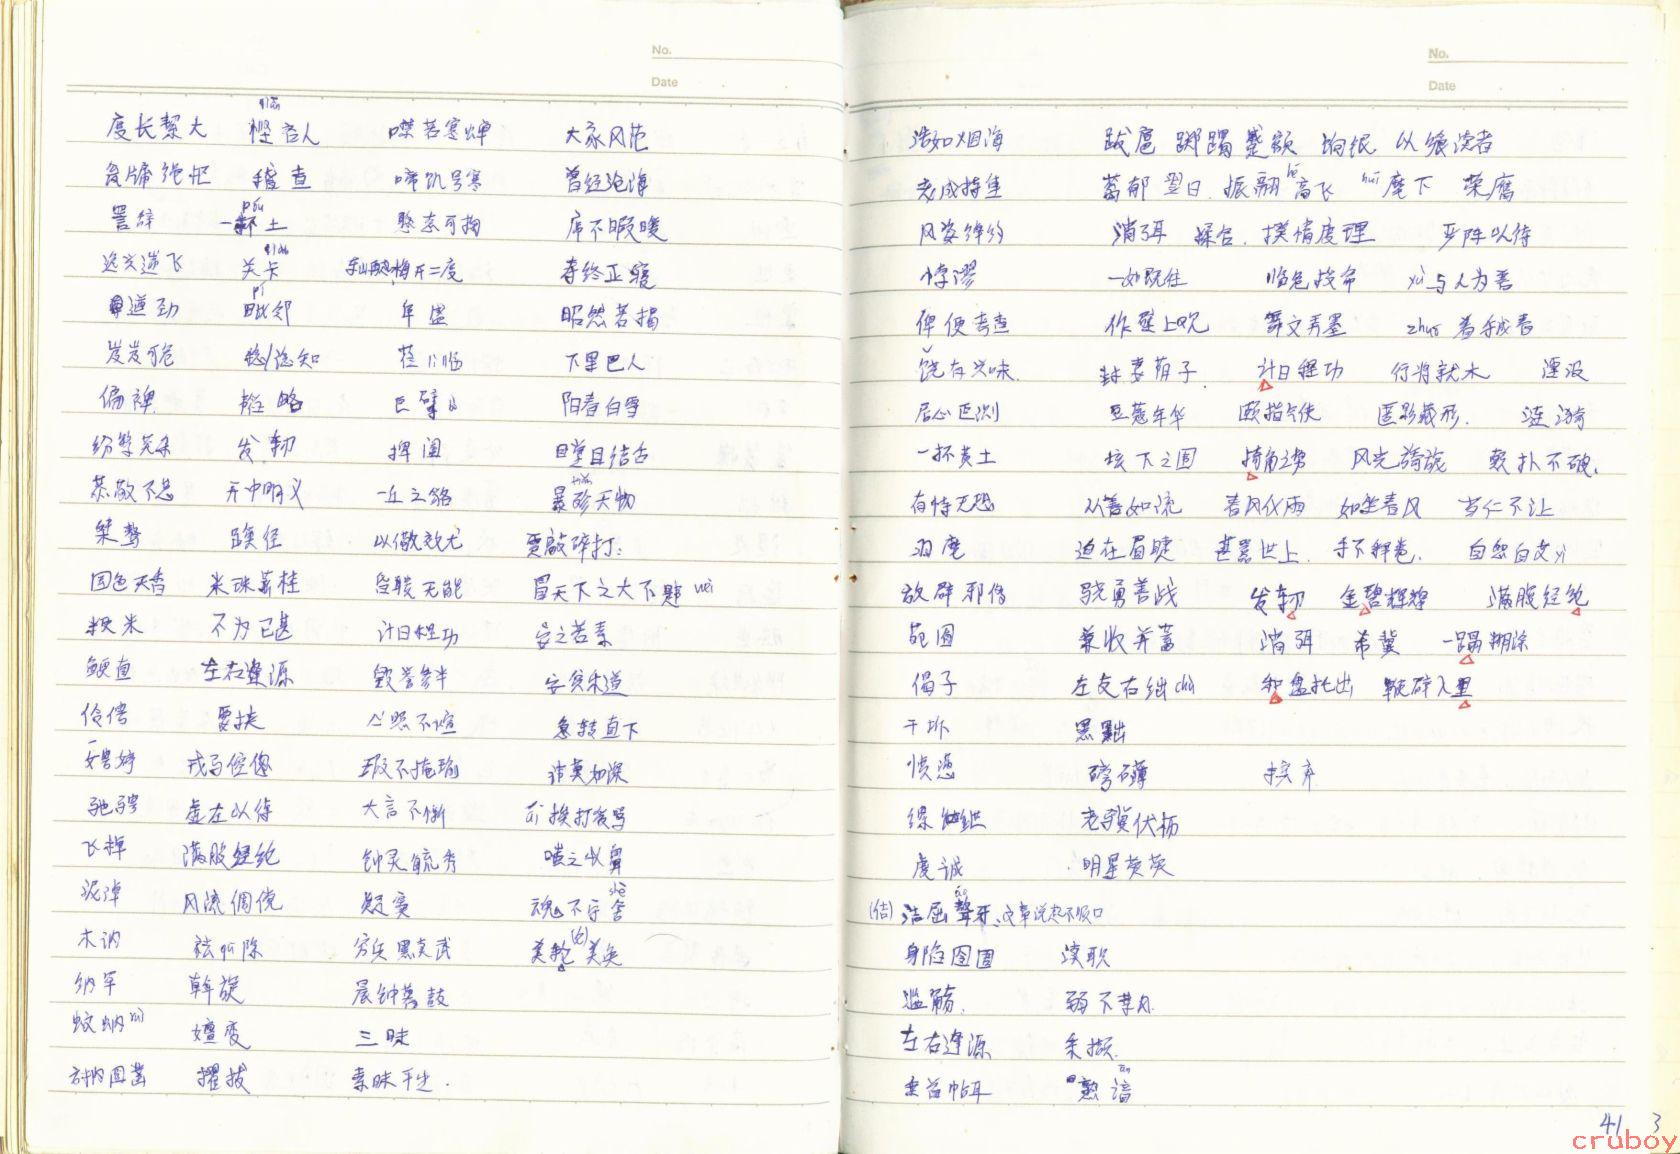 No.
Date
qiān
度长絜大 悭吝人 噤若寒蝉 大家风范
稽查 啼饥号寒 曾经沧海
póu
詈辞 一抔土 憨态可掬 席不暇暖
qiǎ
逸兴遄飞 关卡 梅开二度 寿终正寝
pí
遒劲 毗邻 年逾 昭然若揭
岌岌可危 谂知 莅临 下里巴人
偏裨 韬略 巨擘 阳春白雪
纷繁芜杂 发轫 捭阖 瞠目结舌
tiǎn
恭敬不怠 开中明义 一丘之貉 暴殄天物
桀骜 蹊径 以儆效尤
国色天香 米珠薪桂 冒天下之大不韪 wěi
粳米 不为已甚 计日程功 安之若素
鲠直 左右逢源 毁誉参半 安贫乐道
伶俜 要挟 心照不宣 急转直下
娉婷 戎马倥偬 瑕不掩瑜 讳莫如深
驰骋 虚左以待 大言不惭 挨打受骂
满腹经纶 钟灵毓秀 嗤之以鼻
shè
泥淖 风流倜傥 魂不守舍
木讷 祛除 穷兵黩武 美轮(仑)美奂
纳罕 斡旋 晨钟暮鼓
蚊蚋 ruì 嬗变 三昧
方枘圆凿 擢拔 素昧平生.
No.
Date
浩如烟海 跋扈 踯躅 蹙额 以飨读者
老成持重 蓊郁 翌日. 振翮高飞 huī 麾下 荣膺
风姿绰约 消弭 揉合. 揆情度理 严阵以待
悖谬 一如既往 临危授命 yǔ 与人为善
俾便考查 作壁上观 舞文弄墨
饶有兴味. 封妻荫子. 计日程功 行将就木 湮没
居心叵测 豆蔻年华 颐指气使 匿影藏形. 涟漪
一抔黄土 垓下之围 掎角之势 风光旖旎
有恃无恐 从善如流 春风化雨 如坐春风 当仁不让
羽麾 迫在眉睫 甚嚣尘上. 手不释卷.
放辟邪侈 骁勇善战 发轫 金碧辉煌 满腹经纶
苑囿 兼收并蓄 消弭 希冀 一蹋糊涂
偈子 左支右绌 chù 和盘托出 鞭辟入里
干坼 黑黜
愤懑 磅礴 摈弃
缧绁 老骥伏枥
虔诚 明星荧荧
áo
(佶) 诘屈聱牙、文章说起不顺口
身陷囹圄 渎职
滥觞. 弱不禁风.
左右逢源 采撷.
俯首帖耳 熟谙
41 3
cruboy